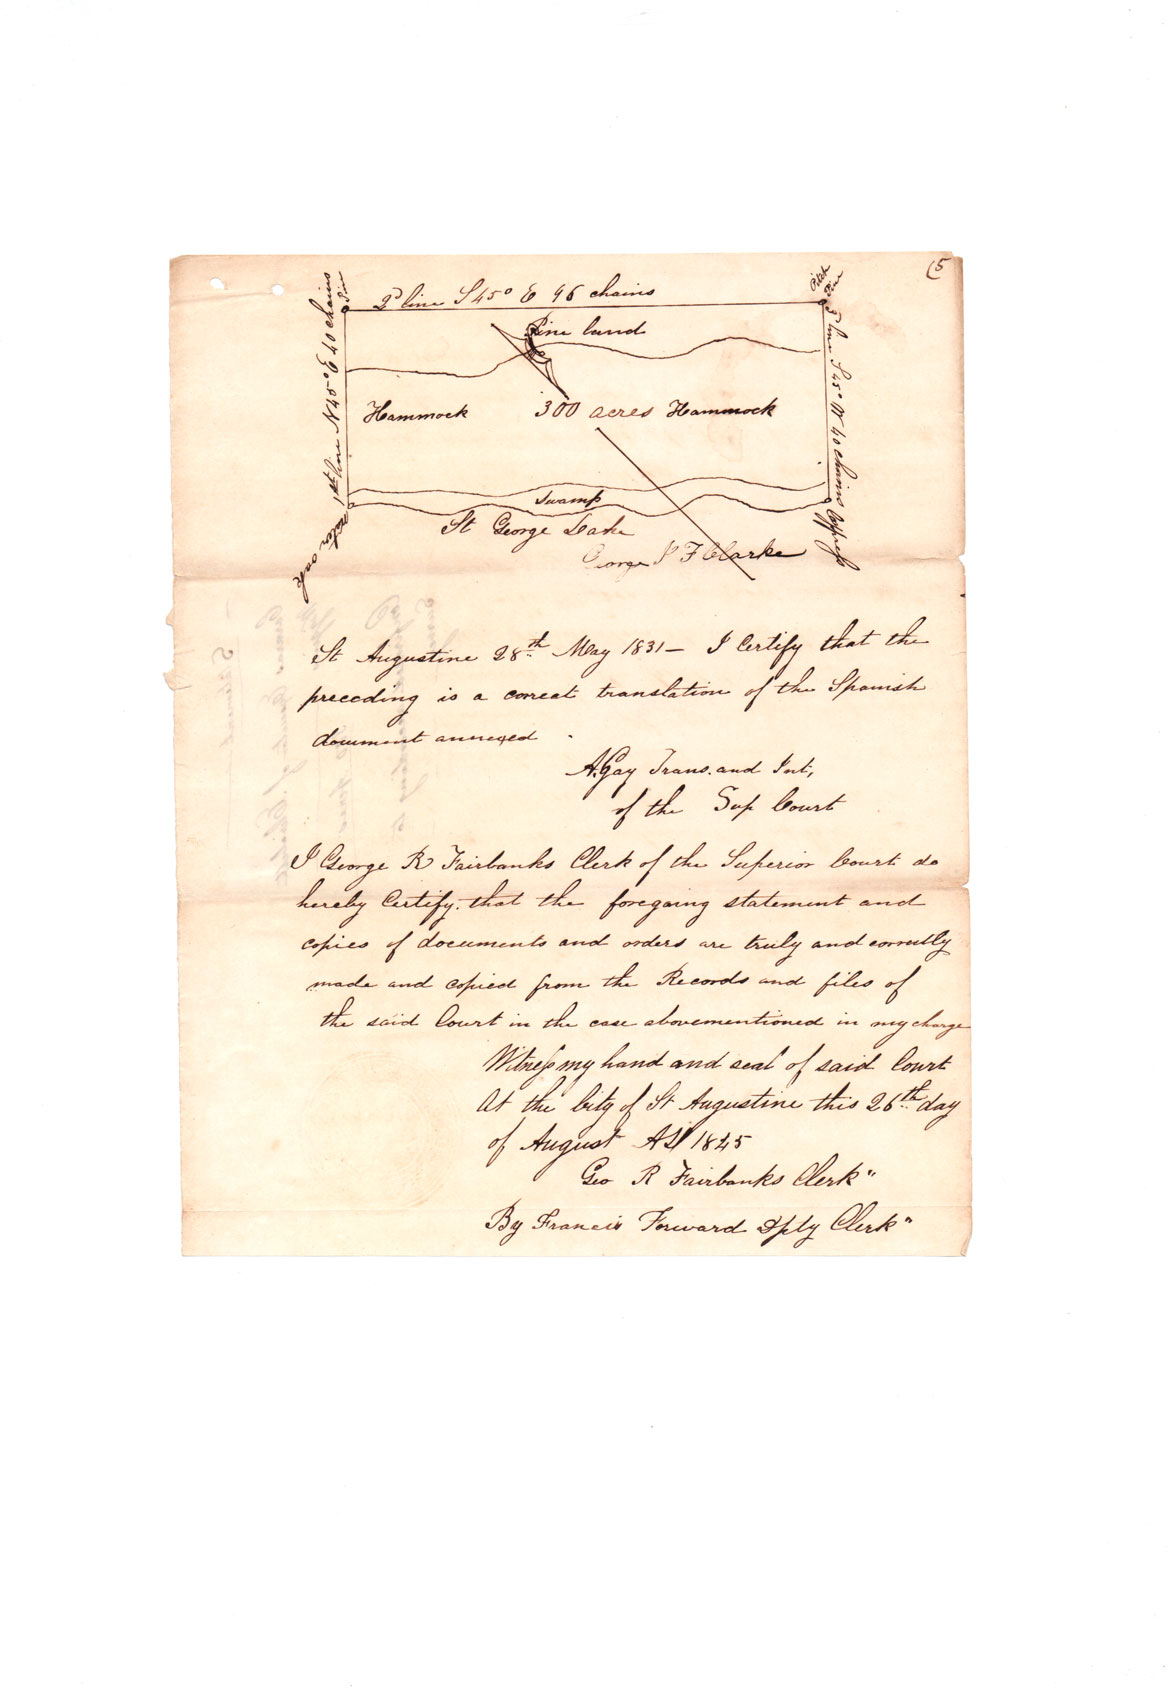 (5
2d line S 45° E 96 chains
Pine
Pitch Pine
1st line N 45° E 40 chains
3d line S 45° W 40 chains
Pine land
Hammock 300 acres Hammock
Swamp
St George Lake
George J F Clarke
St Augustine 28th May 1831 — I Certify that the
preceding is a correct translation of the Spanish
document annexed .
A. Gay Trans. and Int,
of the Sup Court
I George R Fairbanks Clerk of the Superior Court do
hereby Certify. that the foregoing statement and
copies of documents and orders are truly and correctly
made and copied from the Records and files of
the said Court in the case abovementioned in my charge
Witness my hand and seal of said Court
At the City of St Augustine this 26th day
of August AD 1845
Geo R Fairbanks Clerk"
By Francis Forward Dpty Clerk"